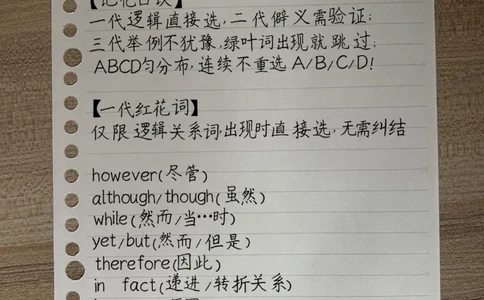 一代逻辑直接选,二代僻义需验证;
三代举例不犹豫,绿叶词出现就跳过;
ABCD匀分布,连续不重选A/B/C/D!
【一代红花词】
仅限逻辑关系词,出现时直接选,无需纠结
however(尽管)
although/though(虽然)
while(然而/当…时)
yet/but(然而/但是)
therefore(因此)
in fact(递进/转折关系)